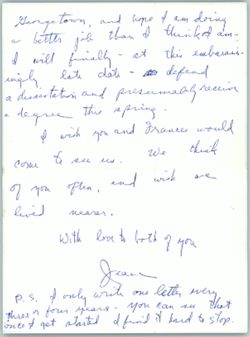 Georgetown, and hope I am doing
a better job than I think I am.
I will finally - at this embarass-
ingly late date - defend
a dissertation and presumably receive
a degree this spring.
I wish you and Frances would
come to see us. We think
of you often, and wish we
lived nearer.
With love to both of you
Jean
P.S. I only write one letter every
three or four years - you can see that
once I get started I find it hard to stop.